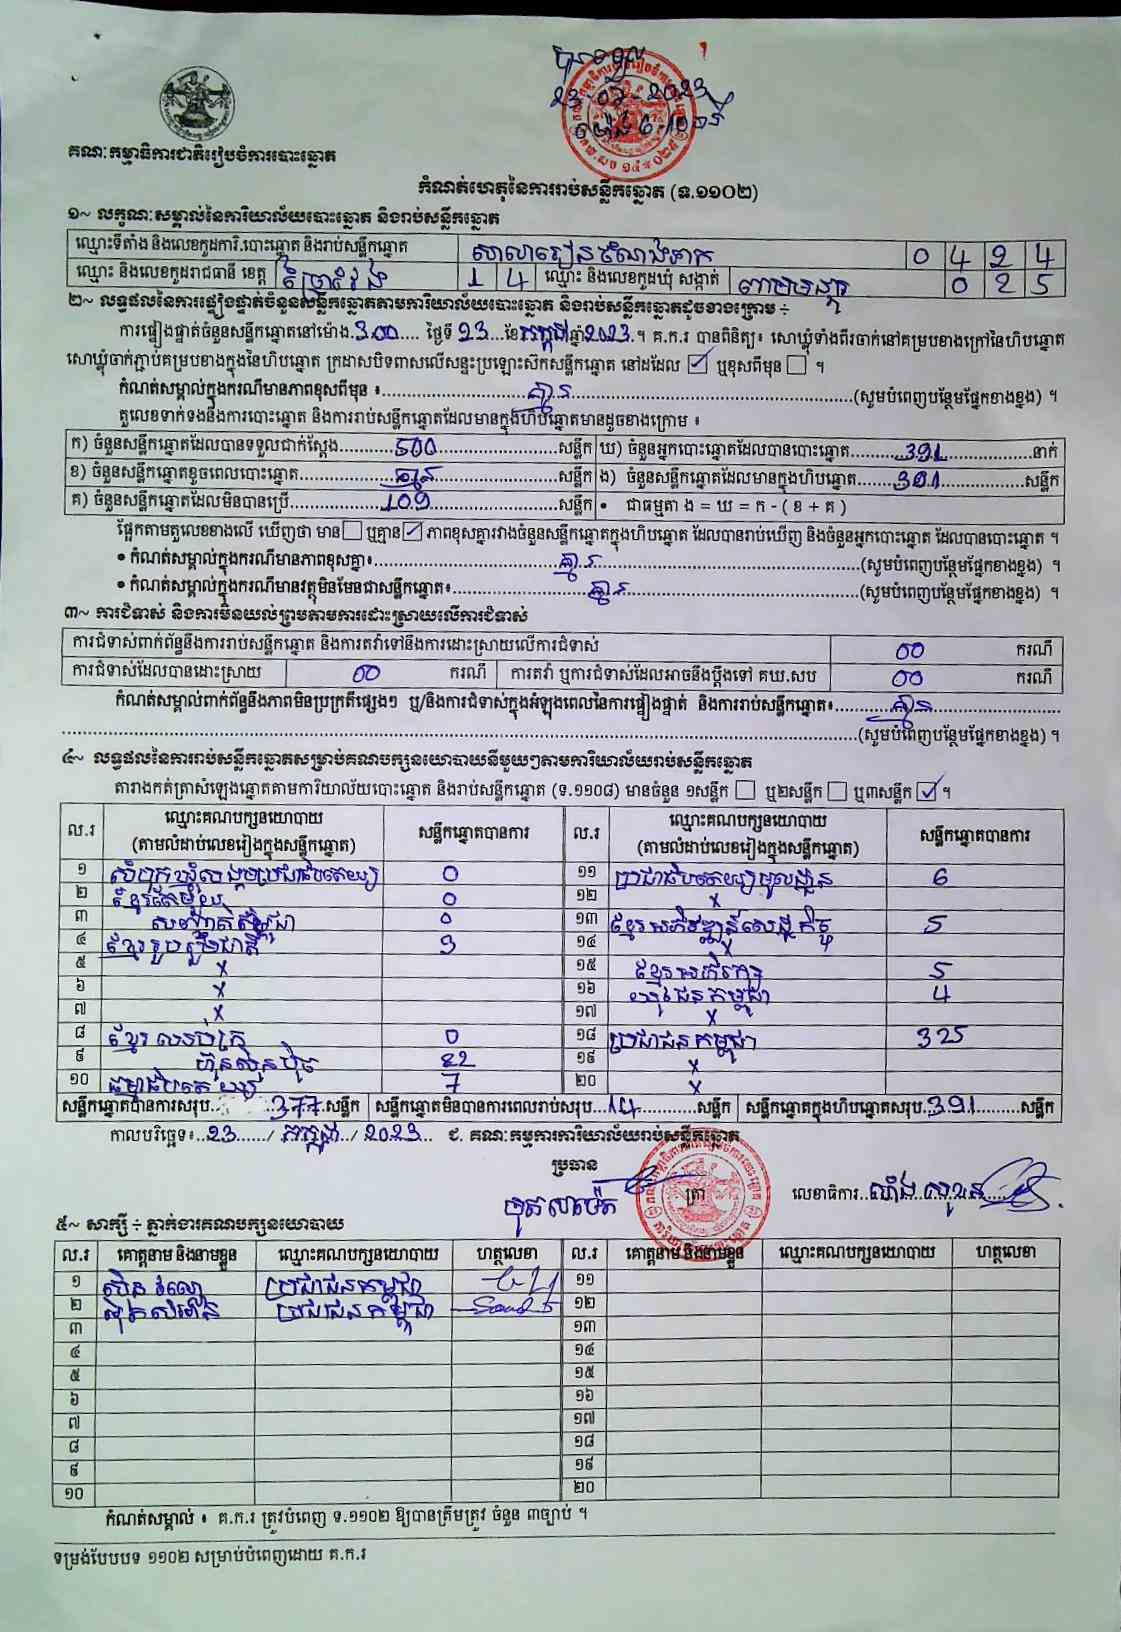 បានទទួល
23-07-2023
ម៉ោង 6:10 នាទី
គណៈកម្មាធិការជាតិរៀបចំការបោះឆ្នោត
កំណត់ហេតុនៃការរាប់សន្លឹកឆ្នោត (ទ.១១០២)
១~ លក្ខណៈសម្គាល់នៃការិយាល័យបោះឆ្នោត និងរាប់សន្លឹកឆ្នោត
ឈ្មោះទីតាំង និងលេខកូដការិ.បោះឆ្នោត និងរាប់សន្លឹកឆ្នោត សាលារៀន 0 4 2 4
ឈ្មោះ និងលេខកូដរាជធានី ខេត្ត ព្រៃវែង 1 4 ឈ្មោះ និងលេខកូដឃុំ សង្កាត់ 0 2 5
២~ លទ្ធផលនៃការផ្ទៀងផ្ទាត់ចំនួនសន្លឹកឆ្នោតតាមការិយាល័យបោះឆ្នោត និងរាប់សន្លឹកឆ្នោតដូចខាងក្រោម ÷
ការផ្ទៀងផ្ទាត់ចំនួនសន្លឹកឆ្នោតនៅម៉ោង.3:00.... ថ្ងៃទី 23 ....ខែកក្កដាឆ្នាំ2023.។ គ.ក.រ បានពិនិត្យ៖ សោឃ្លុំទាំងពីរចាក់នៅគម្របខាងក្រៅនៃហិបឆ្នោត
សោឃ្លុំចាក់ភ្ជាប់គម្របខាងក្នុងនៃហិបឆ្នោត ក្រដាសបិទពាសលើសន្ទះប្រឡោះស៊កសន្លឹកឆ្នោត នៅដដែល ☑ ឬខុសពីមុន ☐ ។
កំណត់សម្គាល់ក្នុងករណីមានភាពខុសពីមុន ៖....គ្មាន....(សូមបំពេញបន្ថែមផ្នែកខាងខ្នង) ។
តួលេខទាក់ទងនឹងការបោះឆ្នោត និងការរាប់សន្លឹកឆ្នោតដែលមានក្នុងហិបឆ្នោតមានដូចខាងក្រោម ៖
ក) ចំនួនសន្លឹកឆ្នោតដែលបានទទួលជាក់ស្តែង....500....សន្លឹក ឃ) ចំនួនអ្នកបោះឆ្នោតដែលបានបោះឆ្នោត....391....នាក់
ខ) ចំនួនសន្លឹកឆ្នោតខូចពេលបោះឆ្នោត....គ្មាន....សន្លឹក ង) ចំនួនសន្លឹកឆ្នោតដែលមានក្នុងហិបឆ្នោត....391....សន្លឹក
គ) ចំនួនសន្លឹកឆ្នោតដែលមិនបានប្រើ....109....សន្លឹក • ជាធម្មតា ង = ឃ = ក - ( ខ + គ )
ផ្អែកតាមតួលេខខាងលើ ឃើញថា មាន☐ ឬគ្មាន☑ ភាពខុសគ្នារវាងចំនួនសន្លឹកឆ្នោតក្នុងហិបឆ្នោត ដែលបានរាប់ឃើញ និងចំនួនអ្នកបោះឆ្នោត ដែលបានបោះឆ្នោត ។
• កំណត់សម្គាល់ក្នុងករណីមានភាពខុសគ្នា៖....គ្មាន....(សូមបំពេញបន្ថែមផ្នែកខាងខ្នង) ។
• កំណត់សម្គាល់ក្នុងករណីមានវត្ថុមិនមែនជាសន្លឹកឆ្នោត៖....គ្មាន....(សូមបំពេញបន្ថែមផ្នែកខាងខ្នង) ។
៣~ ការជំទាស់ និងការមិនយល់ព្រមតាមការដោះស្រាយលើការជំទាស់
ការជំទាស់ពាក់ព័ន្ធនឹងការរាប់សន្លឹកឆ្នោត និងការតវ៉ាទៅនឹងការដោះស្រាយលើការជំទាស់ 00 ករណី
ការជំទាស់ដែលបានដោះស្រាយ 00 ករណី ការតវ៉ា ឬការជំទាស់ដែលអាចនឹងប្តឹងទៅ គឃ.សប 00 ករណី
កំណត់សម្គាល់ពាក់ព័ន្ធនឹងភាពមិនប្រក្រតីផ្សេងៗ ឬ/និងការជំទាស់ក្នុងអំឡុងពេលនៃការផ្ទៀងផ្ទាត់ និងការរាប់សន្លឹកឆ្នោត៖....គ្មាន....
....(សូមបំពេញបន្ថែមផ្នែកខាងខ្នង) ។
៤~ លទ្ធផលនៃការរាប់សន្លឹកឆ្នោតសម្រាប់គណបក្សនយោបាយនីមួយៗតាមការិយាល័យរាប់សន្លឹកឆ្នោត
តារាងកត់ត្រាសំឡេងឆ្នោតតាមការិយាល័យបោះឆ្នោត និងរាប់សន្លឹកឆ្នោត (ទ.១១០៨) មានចំនួន ១សន្លឹក ☐ ឬ២សន្លឹក ☐ ឬ៣សន្លឹក ☑ ។
ល.រ ឈ្មោះគណបក្សនយោបាយ (តាមលំដាប់លេខរៀងក្នុងសន្លឹកឆ្នោត) សន្លឹកឆ្នោតបានការ ល.រ ឈ្មោះគណបក្សនយោបាយ (តាមលំដាប់លេខរៀងក្នុងសន្លឹកឆ្នោត) សន្លឹកឆ្នោតបានការ
១ សំបុកឃ្មុំសង្គមប្រជាធិបតេយ្យ 0 ១១ ប្រជាធិបតេយ្យមូលដ្ឋាន 6
២ ខ្មែរតែមួយ 0 ១២ x
៣ សញ្ជាតិកម្ពុជា 0 ១៣ ខ្មែរអភិវឌ្ឍន៍សេដ្ឋកិច្ច 5
៤ ខ្មែររួបរួមជាតិ 3 ១៤ x
៥ x ១៥ ខ្មែរអភិរក្ស 5
៦ x ១៦ យុវជនកម្ពុជា 4
៧ x ១៧ x
៨ ខ្មែរឈប់ក្រ 0 ១៨ ប្រជាជនកម្ពុជា 325
៩ ហ៊្វុនស៊ិនប៉ិច 22 ១៩ x
១០ ធម្មាធិបតេយ្យ 7 ២០ x
សន្លឹកឆ្នោតបានការសរុប....377.សន្លឹក សន្លឹកឆ្នោតមិនបានការពេលរាប់សរុប...14....សន្លឹក សន្លឹកឆ្នោតក្នុងហិបឆ្នោតសរុប.391....សន្លឹក
កាលបរិច្ឆេទ៖..23...../ កក្កដា../ 2023... ជ. គណៈកម្មការការិយាល័យរាប់សន្លឹកឆ្នោត
ប្រធាន
ត្រា
លេខាធិការ
៥~ សាក្សី ÷ ភ្នាក់ងារគណបក្សនយោបាយ
ល.រ គោត្តនាម និងនាមខ្លួន ឈ្មោះគណបក្សនយោបាយ ហត្ថលេខា ល.រ គោត្តនាម និងនាមខ្លួន ឈ្មោះគណបក្សនយោបាយ ហត្ថលេខា
១ ប្រជាជនកម្ពុជា ១១
២ ប្រជាជនកម្ពុជា ១២
៣ ១៣
៤ ១៤
៥ ១៥
៦ ១៦
៧ ១៧
៨ ១៨
៩ ១៩
១០ ២០
កំណត់សម្គាល់ ៖ គ.ក.រ ត្រូវបំពេញ ទ.១១០២ ឱ្យបានត្រឹមត្រូវ ចំនួន ៣ច្បាប់ ។
ទម្រង់បែបបទ ១១០២ សម្រាប់បំពេញដោយ គ.ក.រ